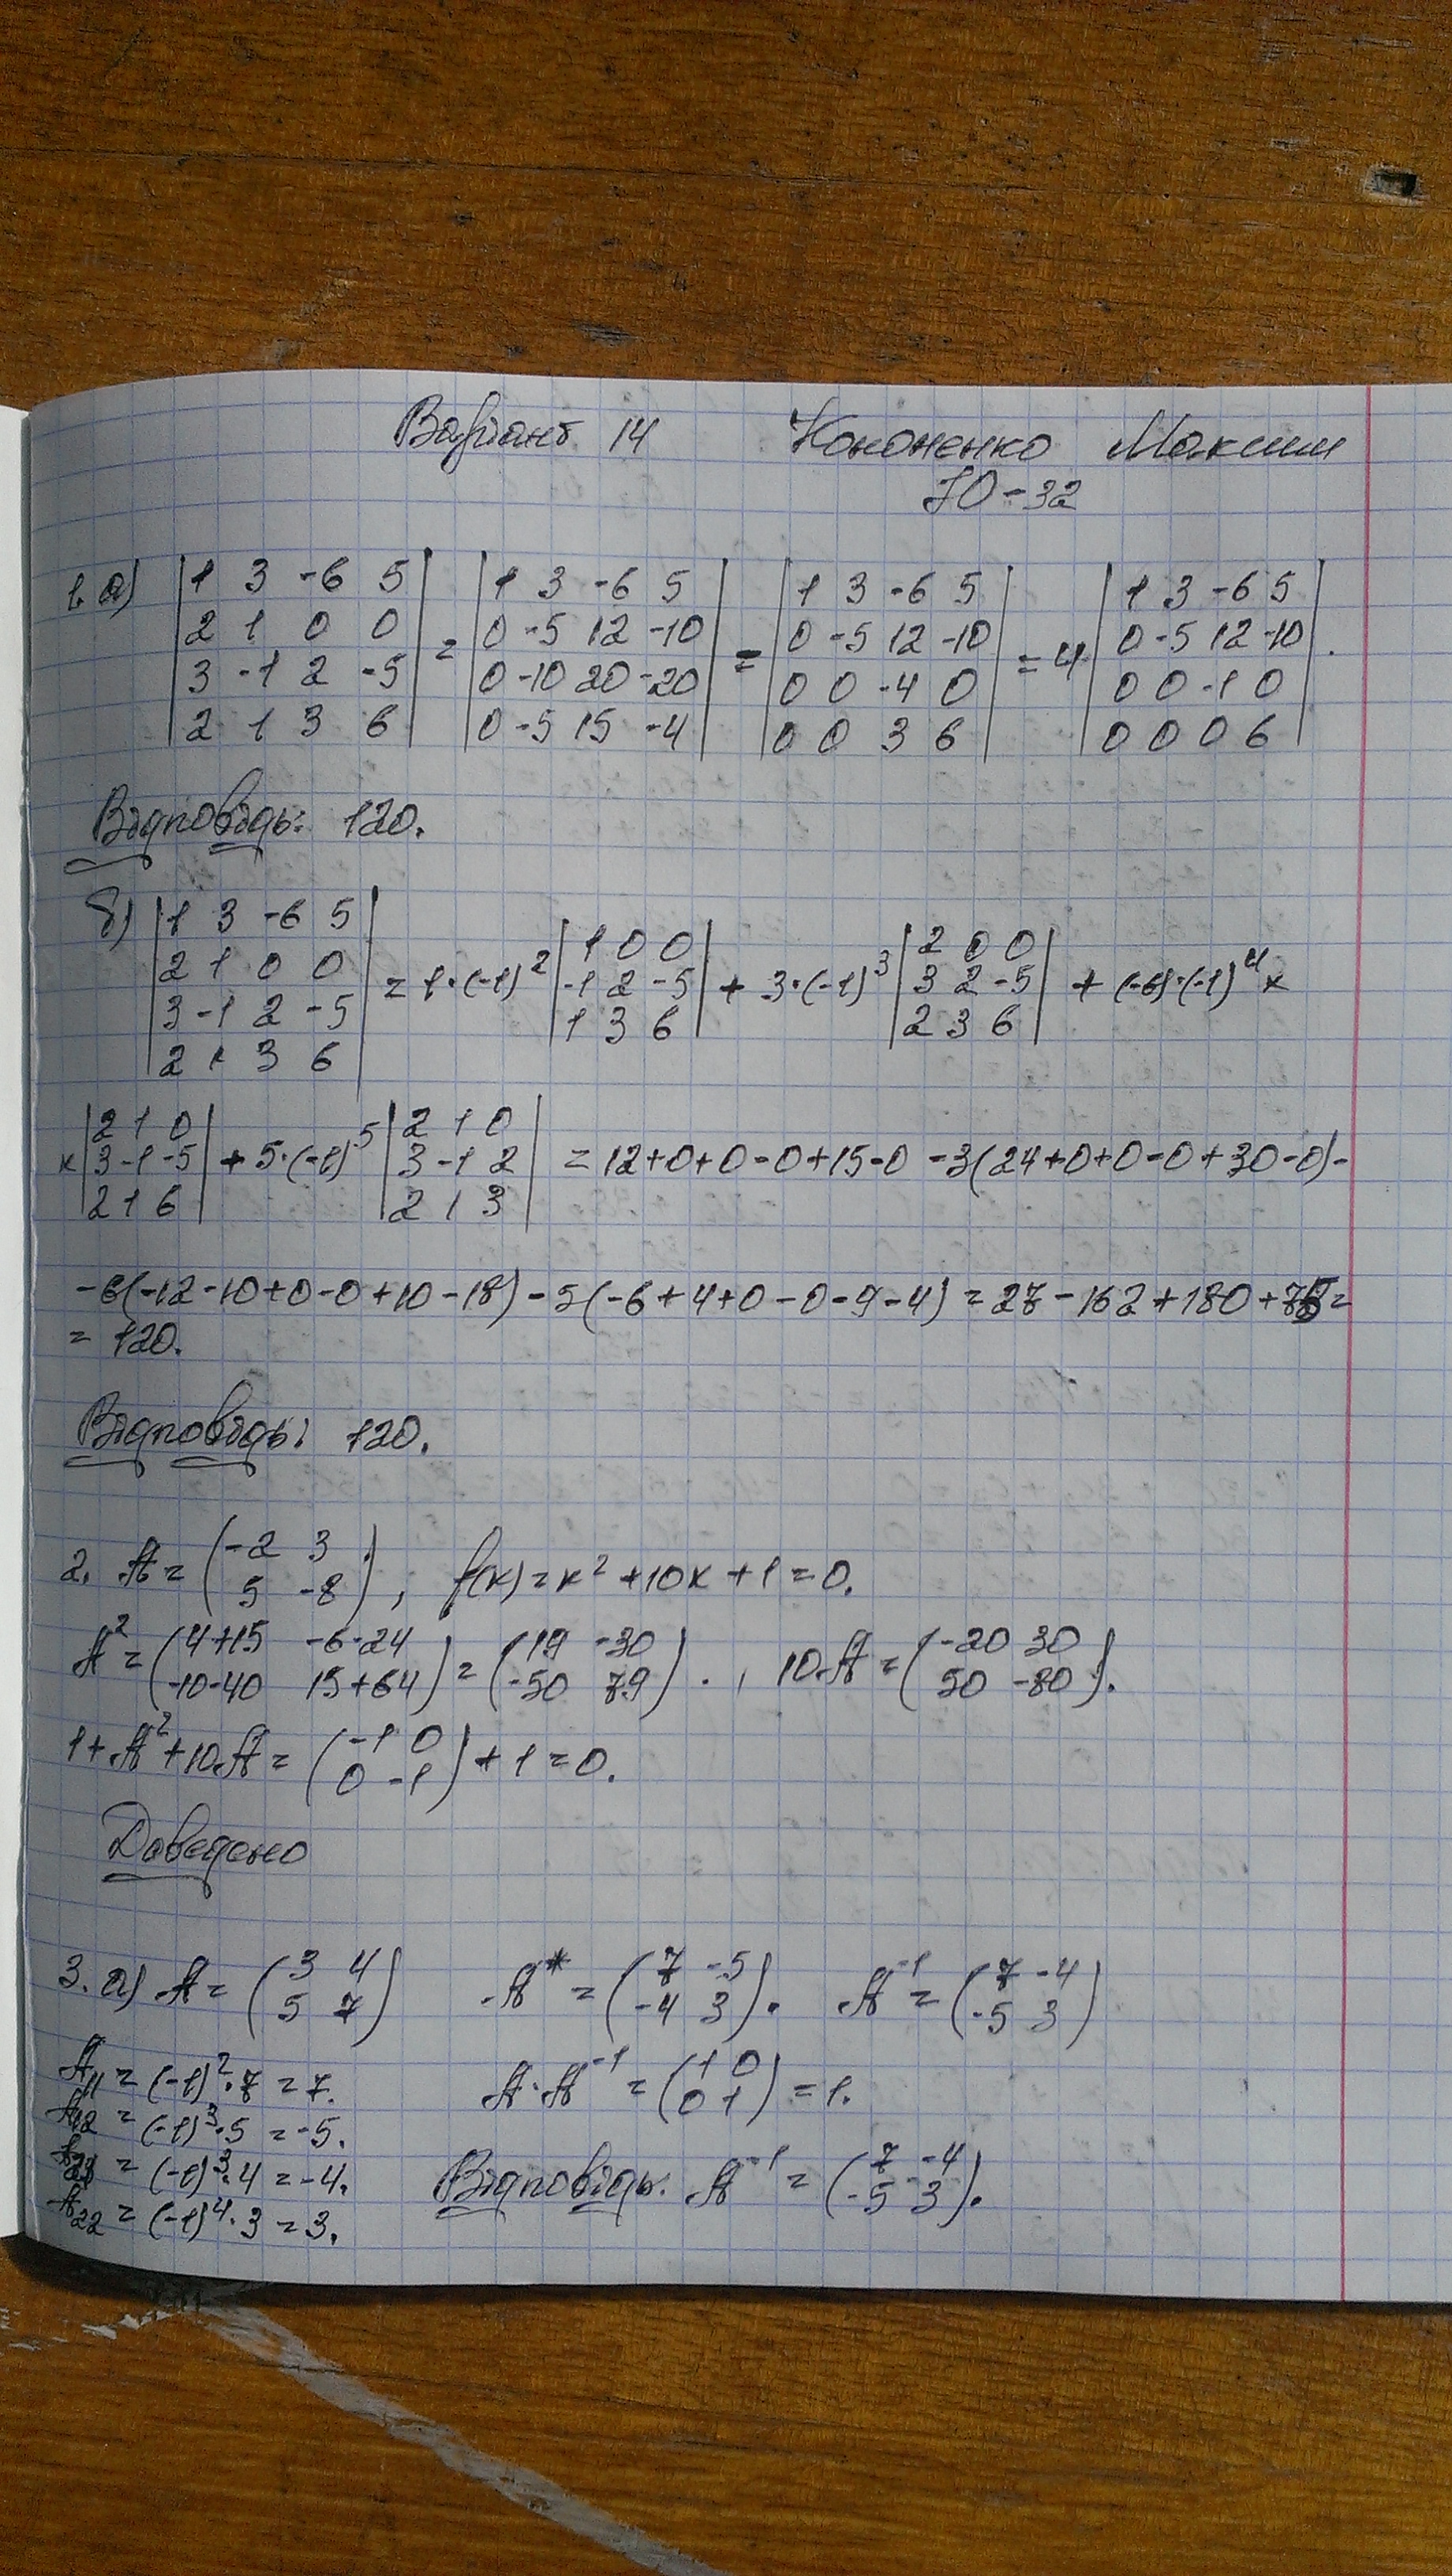 Варіант 14 Кононенко Максим
ЗО-32
1. а) |1 3 -6 5| = |1 3 -6 5| = |1 3 -6 5| = 4 |1 3 -6 5|.
|2 1 0 0| |0 -5 12 -10| |0 -5 12 -10| |0 -5 12 -10|
|3 -1 2 -5| |0 -10 20 -20| |0 0 -4 0| |0 0 -1 0|
|2 1 3 6| |0 -5 15 -4| |0 0 3 6| |0 0 0 6|
Відповідь: 120.
б) |1 3 -6 5| = 1·(-1)² |1 0 0| + 3·(-1)³ |2 0 0| + (-6)·(-1)⁴ ×
|2 1 0 0| |-1 2 -5| |3 2 -5|
|3 -1 2 -5| |1 3 6| |2 3 6|
|2 1 3 6|
× |2 1 0| + 5·(-1)⁵ |2 1 0| = 12+0+0-0+15-0 -3(24+0+0-0+30-0)-
|3 -1 -5| |3 -1 2|
|2 1 6| |2 1 3|
-6(-12-10+0-0+10-18)-5(-6+4+0-0-9-4) = 27-162+180+75 =
= 120.
Відповідь: 120.
2. A = (-2 3; 5 -8), f(x) = x² + 10x + 1 = 0.
A² = (4+15 -6-24; -10-40 15+64) = (19 -30; -50 79)., 10A = (-20 30; 50 -80).
1+A²+10A = (-1 0; 0 -1) + 1 = 0.
Доведено
3. а) A = (3 4; 5 7) A* = (7 -5; -4 3). A⁻¹ = (7 -4; -5 3)
A₁₁ = (-1)²·7 = 7.
A₁₂ = (-1)³·5 = -5.
A₂₁ = (-1)³·4 = -4.
A₂₂ = (-1)⁴·3 = 3.
A·A⁻¹ = (1 0; 0 1) = 1.
Відповідь: A⁻¹ = (7 -4; -5 3).